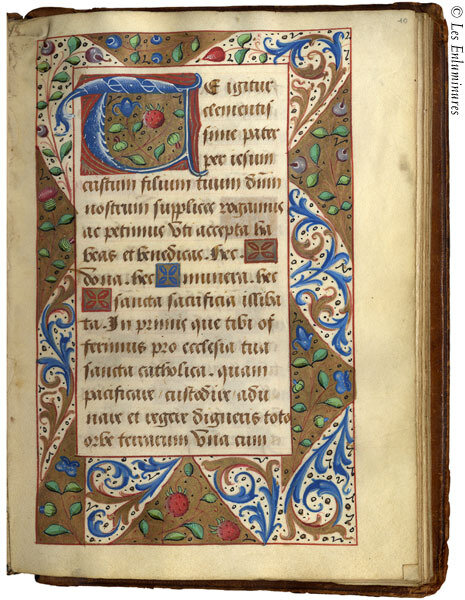 TE igitur
clementis
sime pater
per iesum
cristum filium tuum dñm
nostrum supplices rogamus
ac petimus Vti accepta ha
beas et benedicas. hec
dona. hec munera. hec
sancta sacrificia illiba
ta. In primis que tibi of
ferimus pro ecclesia tua
sancta catholica. quam
pacificare custodire adu
nare et regere digneris toto
orbe terrarum Vna cum
© Les Enluminures